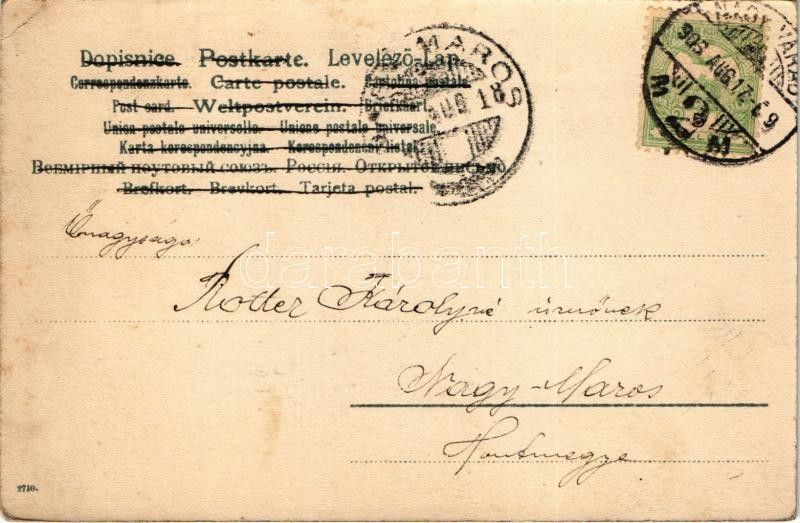 Dopisnice. Postkarte. Levelező-Lap.
Correspondenzkarte. Carte postale. Cartolina postale.
Post card. Weltpostverein. Briefkaart.
Union postale universelle. Unione postale universale.
Karta korespondencyjna. Korespondenční lístek.
Всемірный почтовый союзъ. Россія. Открытое письмо
Brefkort. Brevkort. Tarjeta postal.
MAROS
AUG 18
NAGY-VÁRAD
903 AUG 17
M
M
Őnagysága
darabanth
Rotter Károlyné úrnőnek
Nagy-Maros
Hontmegye
2740.